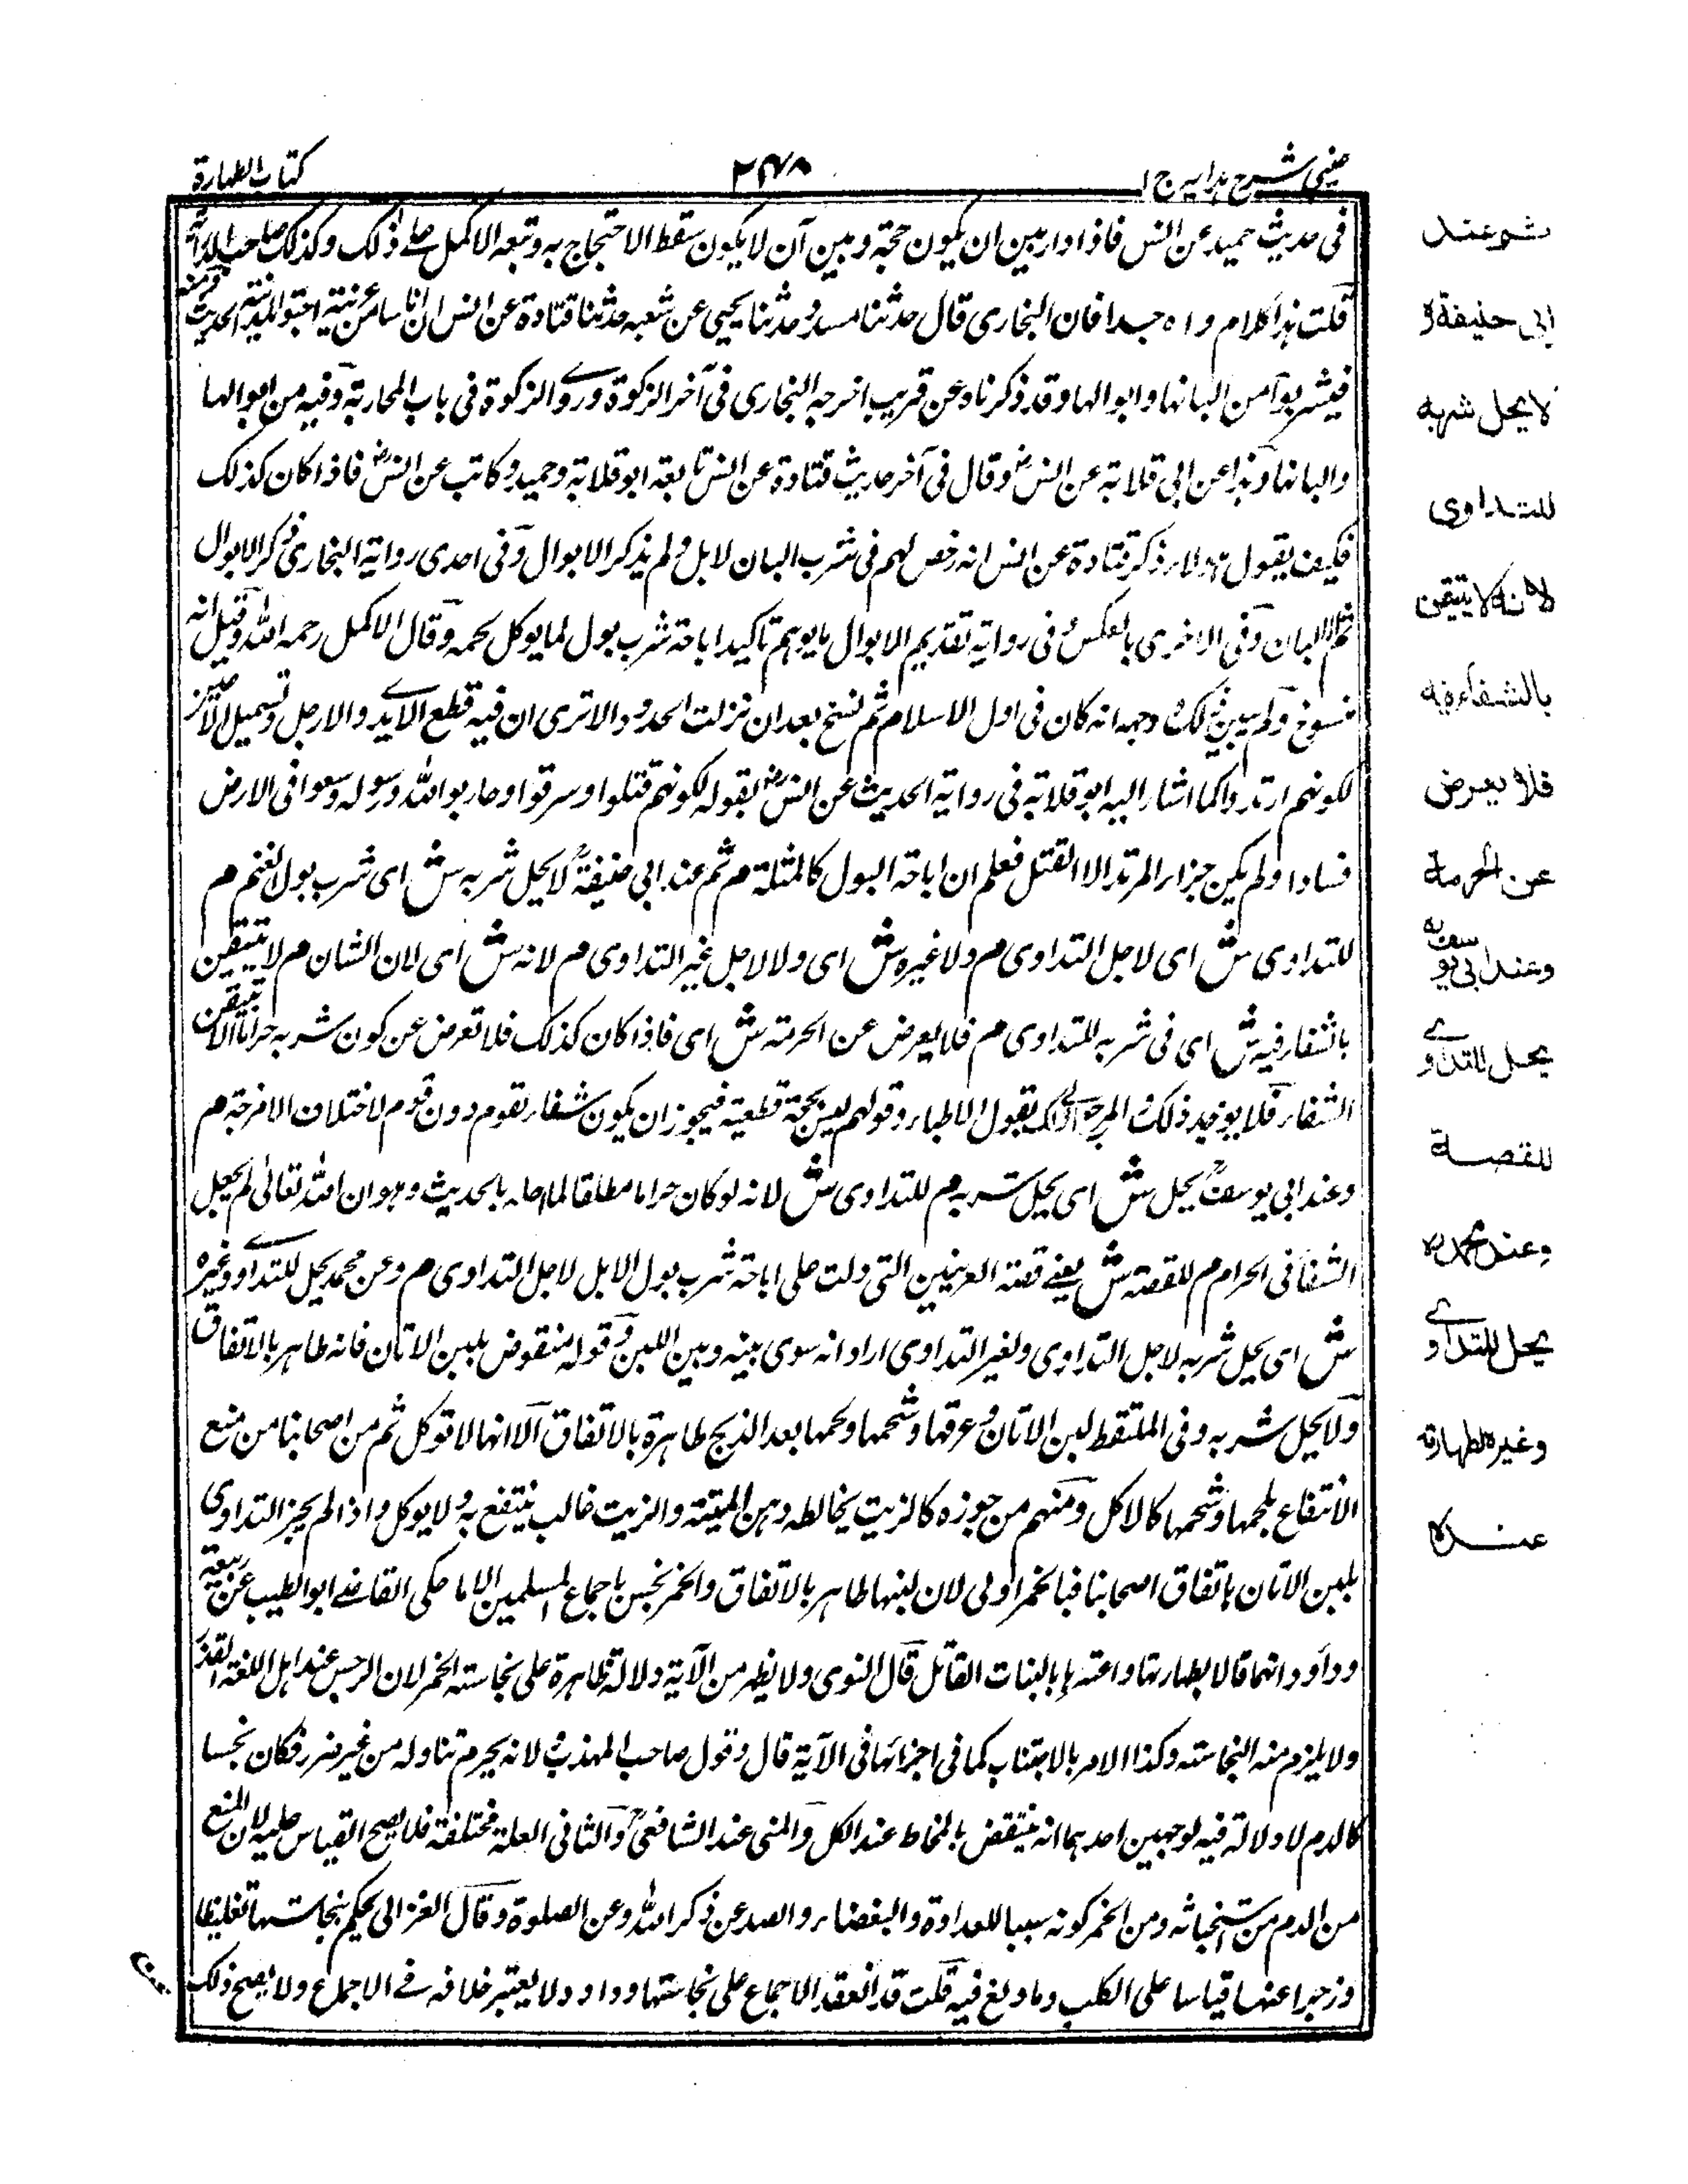 عینی شرح ہدایہ ج ا
۲۴۸
کتاب الطہارۃ
فی حدیث حمید عن انس فاذا دار بین ان یکون حجۃ وبین ان لا یکون سقط الاحتجاج بہ وتبعہ الاکمل علے ذلک وکذلک صاحب الدرایۃ
قلت ہذا کلام واہ جدا فان البخاری قال حدثنا مسدد حدثنا یحیی عن شعبہ حدثنا قتادۃ عن انس ان ناسا من عرینۃ اجتووا المدینۃ الحدیث
فیشربوا من البانہا وابوالہا وقد ذکرناہ عن قریب اخرجہ البخاری فی آخر الزکوۃ وروے الزکوۃ فی باب المحاربۃ وفیہ من ابوالہا
والبانہا وہذا عن ابی قلابۃ عن انس وقال فی آخر حدیث قتادۃ عن انس تابعہ ابو قلابۃ وحمید وکاتب عن انس فاذا کان کذلک
فکیف یقول ہولاء ذکر قتادۃ عن انس انہ رخص لہم فی شرب البان الابل ولم یذکر الابوال وفی احدی روایۃ البخاری ذکر الابوال
ثم الالبان وفی الاخری بالعکس وفی روایۃ تقدیم الابوال ما یوہم تاکید اباحۃ شرب بول لما یوکل لحمہ وقال الاکمل رحمہ اللہ وقیل انہ
منسوخ ولم یبین ذلک وجہہ انہ کان فی اول الاسلام ثم نسخ بعد ان نزلت الحدود الا تری ان فیہ قطع الایدے والارجل وتسمیل الاعین
لکونہم ارتدوا کما اشار الیہ ابو قلابۃ فی روایۃ الحدیث عن انس بقولہ لکونہم قتلوا وسرقوا وحاربوا اللہ ورسولہ وسعوا فی الارض
فسادا ولم یکن جزاء المرتد الا القتل فعلم ان اباحۃ البول کالمثلۃ م ثم عند ابی حنیفۃ لا یحل شربہ ش ای شرب بول الغنم م
للتداوی ش ای لاجل التداوی م ولا غیرہ ش ای ولا لاجل غیر التداوی م لانہ ش ای لان الشان م لا یتیقن
بالشفاء فیہ ش ای فی شربہ للتداوی م فلا یعرض عن الحرمۃ ش ای فاذا کان کذلک فلا تعرض عن کون شربہ حراما الا بتیقن
الشفاء فلا یوخذ ذلک والمرجع فی ذلک بقول الاطباء وقولہم لیس بحجۃ قطعیۃ فیجوز ان یکون شفاء لقوم دون قوم لاختلاف الامزجۃ م
وعند ابی یوسف یحل ش ای یحل شربہ م للتداوی ش لانہ لو کان حراما مطلقا لما احلہ بالحدیث وہو ان اللہ تعالیٰ لم یجعل
الشفاء فی الحرام م للقصۃ ش یعنے قصۃ العرنیین التی دلت علی اباحۃ شرب بول الابل لاجل التداوی م وعن محمد یحل للتداوے وغیرہ
ش ای یحل شربہ لاجل التداوی ولغیر التداوی اراد انہ سوی بینہ وبین اللبن وقولہ منقوض بلبن الاتان فانہ طاہر بالاتفاق
ولا یحل شربہ وفی الملتقط لبن الاتان وعرقہا وشحمہا ولحمہا بعد الذبح طاہرۃ بالاتفاق الا انہا لا توکل ثم من اصحابنا من منع
الانتفاع بلحمہا وشحمہا کالاکل ومنہم من جوزہ کالزیت یخالطہ دہن المیتۃ والزیت غالب ینتفع بہ ولا یوکل واذا لم یجز التداوی
بلبن الاتان باتفاق اصحابنا فبالخمر اولی لان لبنہا طاہر بالاتفاق والخمر نجس باجماع المسلمین الا ما حکی القاضے ابو الطیب عن ربیعۃ
وداود انہما قالا بطہارتہا واعتبرہا بالبنات القاتل قال النووی ولا یظہر من الآیۃ دلالۃ ظاہرۃ علی نجاستہ الخمر لان الرجس عند اہل اللغۃ القذر
ولا یلزم منہ النجاستہ وکذا الامر بالاجتناب کما فی اجزائہا فی الآیۃ قال وقول صاحب المہذب لانہ یحرم تناولہ من غیر ضرر فکان نجسا
کالدم لا دلالۃ فیہ لوجہین احدہما انہ ینتقض بالمخاط عند الکل والمنی عند الشافعی والثانی العلۃ مختلفۃ فلا یصح القیاس علیہ لان المنع
من الدم من استخباثہ ومن الخمر کونہ سببا للعداوۃ والبغضاء والصد عن ذکر اللہ وعن الصلوۃ وقال الغزالی یحکم بنجاستہا تغلیظا
وزجرا عنہا قیاسا علی الکلب وما ولغ فیہ قلت قد انعقد الاجماع علی نجاستہا وداود لا یعتبر خلافہ فے الاجماع ولا یصح ذلک
ثم عند
ابی حنیفۃ
لا یحل شربہ
للتداوی
لانہ لا یتیقن
بالشفاء فیہ
فلا یعرض
عن الحرمۃ
وعند ابی یوسف
یحل للتداوے
للقصۃ
وعند محمد
یحل للتداوے
وغیرہ لطہارتہ
عندہ